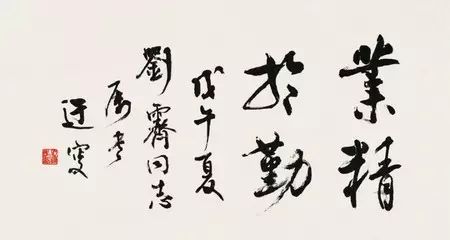 業精
於勤
戊午夏
劉霽同志
属書